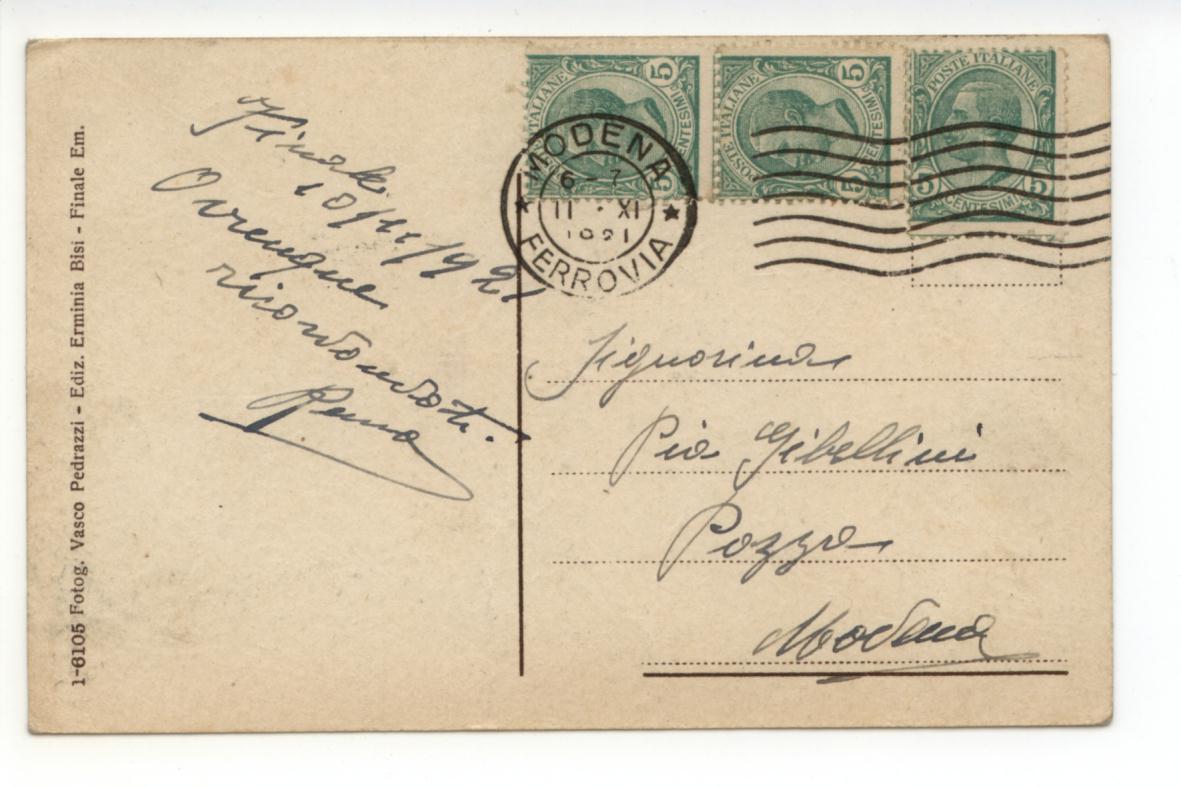 1-6105 Fotog. Vasco Pedrazzi - Ediz. Erminia Bisi - Finale Em.
Finale
10/11/1921
Ovunque
ricordandoti.
POSTE ITALIANE
CENTESIMI
5 5
POSTE ITALIANE
CENTESIMI
5 5
POSTE ITALIANE
5 5
CENTESIMI
MODENA
6 - 7
11 · XI
1921
FERROVIA
Signorina
Pia Gibellini
Pozza
Modena